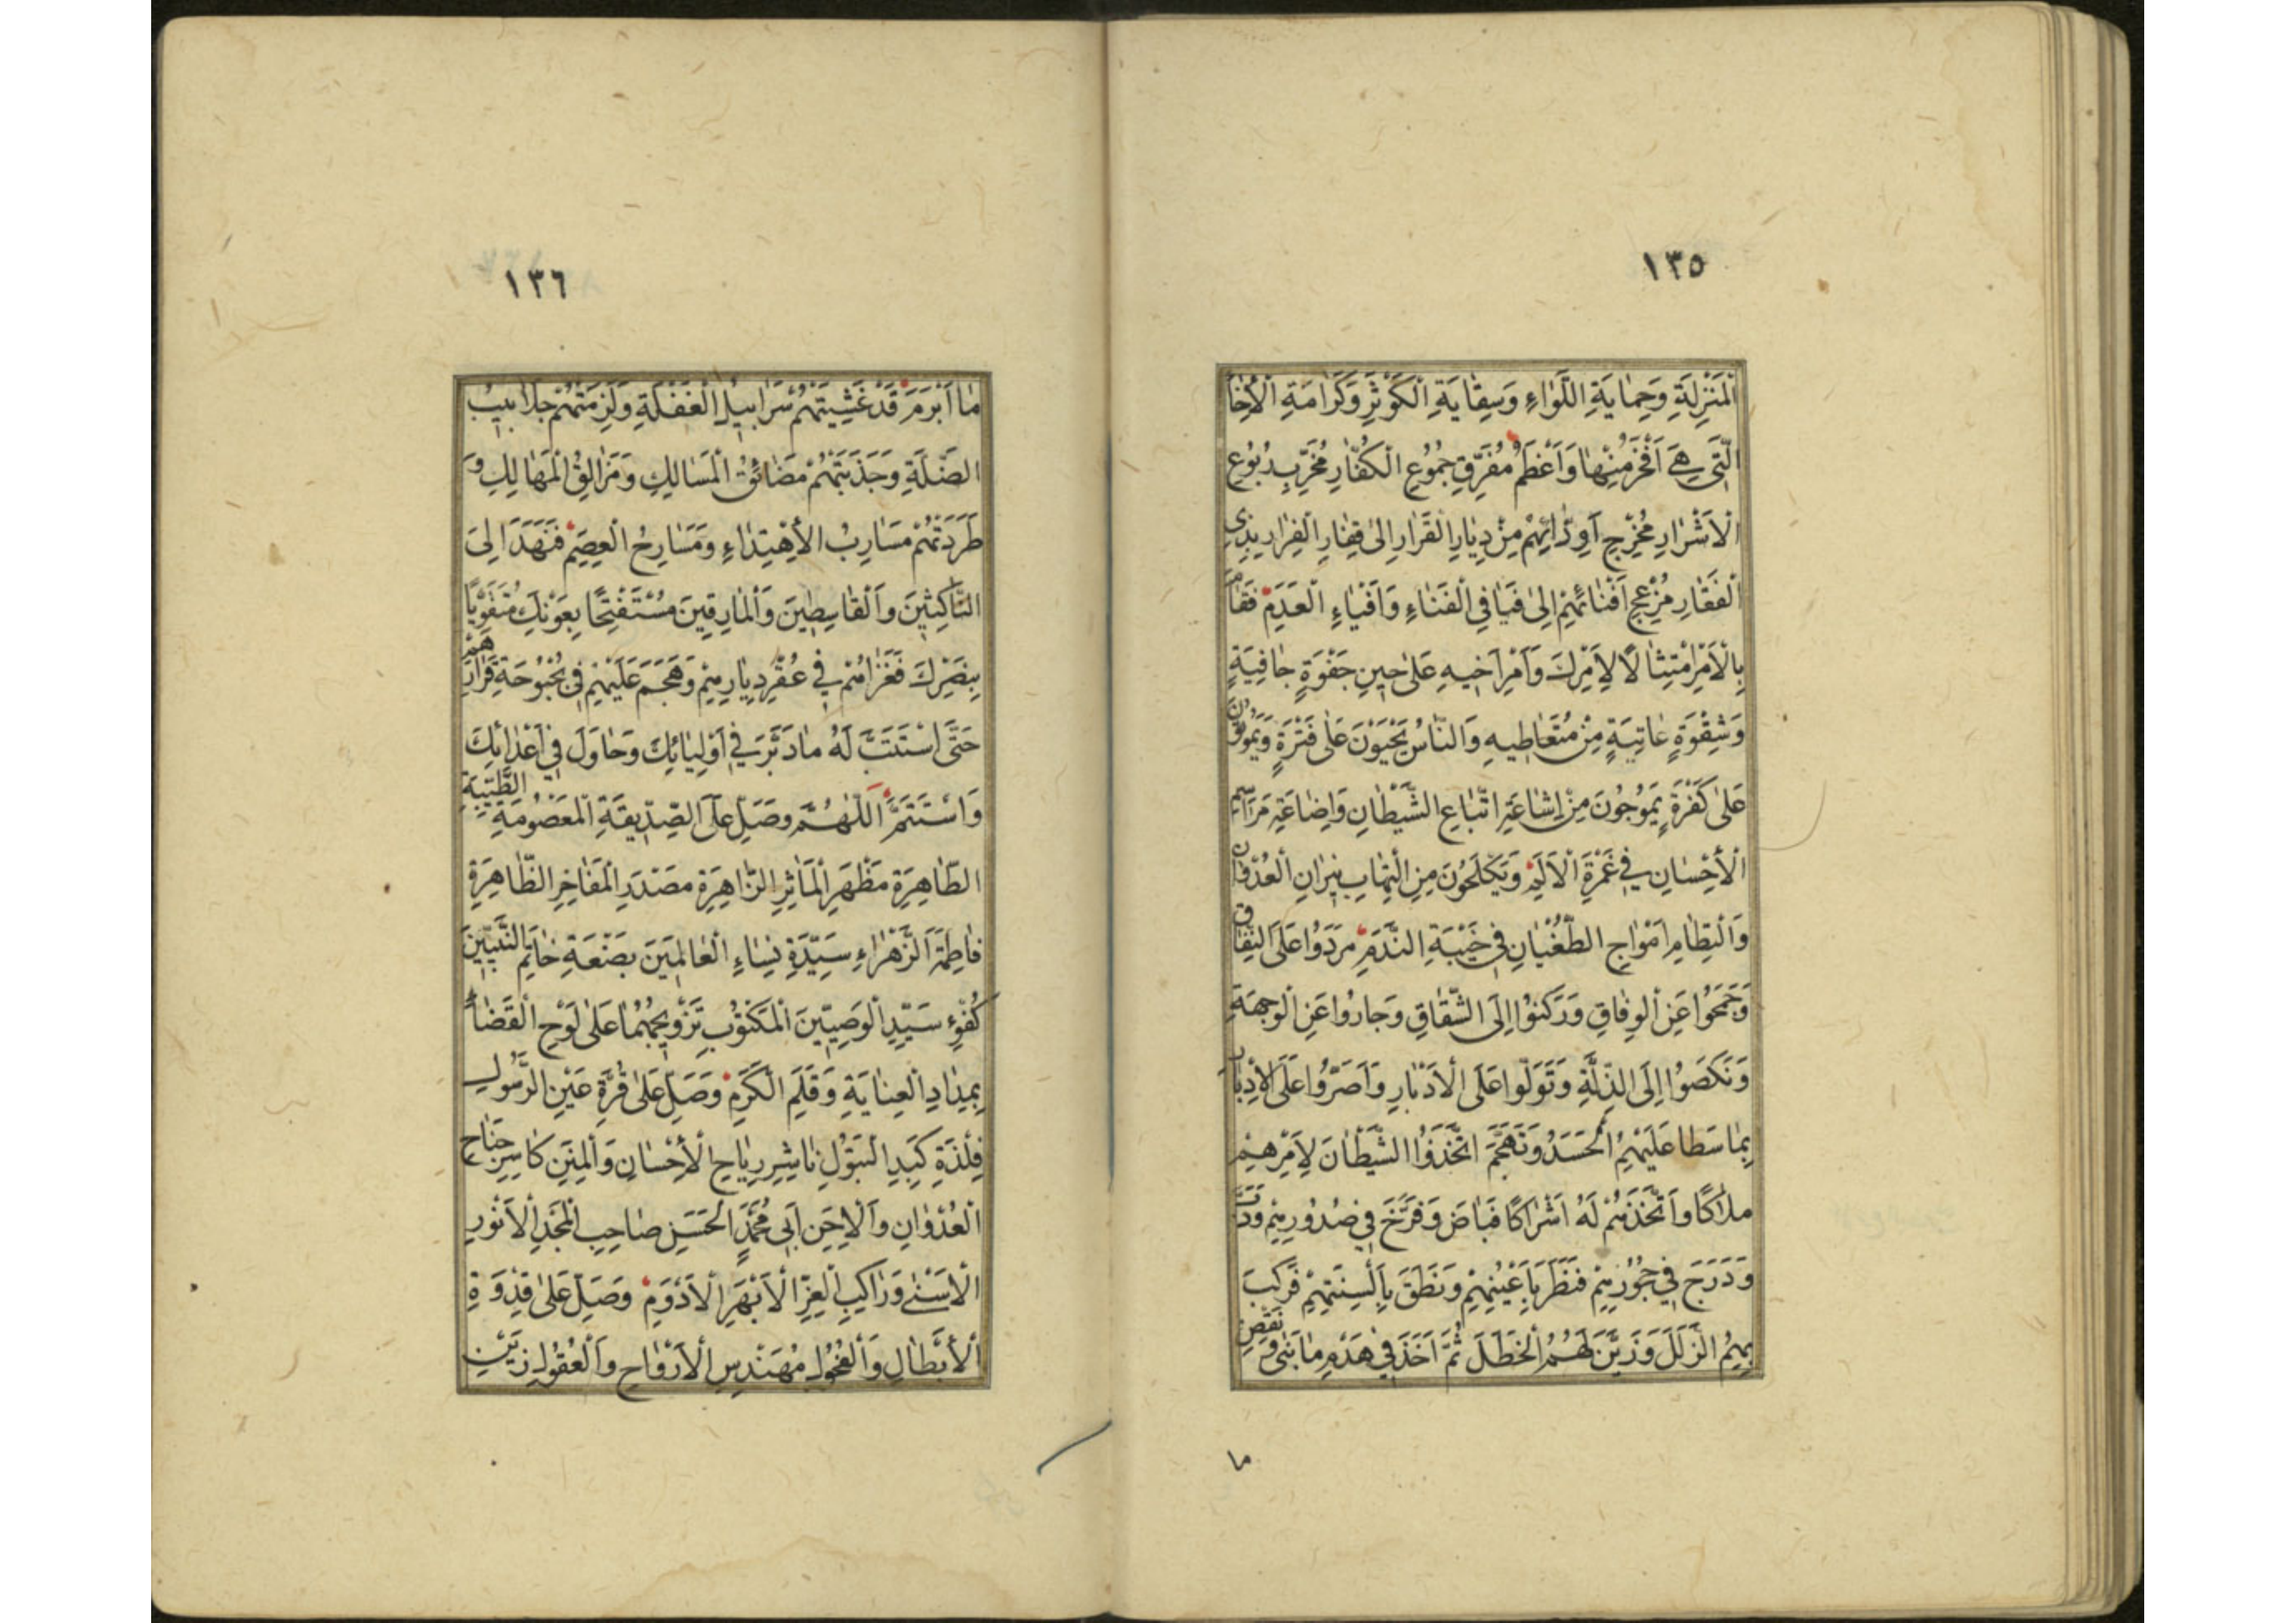 ١٣٥
اَلْمَنْزِلَةِ وَحِمٰايَةِ اللِّوٰاءِ وَسِقٰايَةِ الْكَوْثَرِ وَكَرٰامَةِ الْأِخٰا
الَّتى هِىَ اَفْخَرُ مِنْهٰا وَاَعْظَمُ مُفَرِّقِ جُمُوعِ الْكُفّٰارِ مُخَرِّبِ رُبُوعِ
الْاَشْرٰارِ مُخْرِجِ اَوِدّٰائِهِمْ مِنْ دِيٰارِ الْقَرٰارِ اِلىٰ قِفٰارِ الْفِرٰارِ بِذِى
الْفَقٰارِ مُزْعِجِ اَفْنٰائِهِمْ اِلىٰ فَيٰافِى الْفَنٰاءِ وَاَفْيٰاءِ الْعَدَمِ فَقٰامَ
بِالْاَمْرِ امْتِثٰالًا لِاَمْرِكَ وَاَمْرِ اَخيهِ عَلىٰ حينِ جَفْوَةٍ جٰافِيَةٍ
وَشِقْوَةٍ عٰاتِيَةٍ مِنْ مُتَعٰاطيهِ وَالنّٰاسُ يَحْيَوْنَ عَلىٰ فَتْرَةٍ وَيَمُوتُونَ
عَلىٰ كَفْرَةٍ يَمُوجُونَ مِنْ اِشٰاعَةِ اتِّبٰاعِ الشَّيْطٰانِ وَاِضٰاعَةِ مَرٰاسِمِ
الْأِحْسٰانِ فى غَمْرَةِ الْاَلَمِ وَيَكْلَحُونَ مِنِ الْتِهٰابِ نيرٰانِ الْعُدْوٰانِ
وَالْتِطٰامِ اَمْوٰاجِ الطُّغْيٰانِ فى خَيْبَةِ النَّدَمِ مَرَدُوا عَلَى النِّفٰاقِ
وَجَمَحُوا عَنِ الْوِفٰاقِ وَرَكَنُوا اِلَى الشِّقٰاقِ وَجٰارُوا عَنِ الْوِجْهَةِ
وَنَكَصُوا اِلَى الذِّلَّةِ وَتَوَلَّوا عَلَى الْاَدْبٰارِ وَاَصَرُّوا عَلَى الْاِدْبٰارِ
بِمٰا سَطٰا عَلَيْهِمُ الْحَسَدُ وَتَهَجَّمَ اتَّخَذُوا الشَّيْطٰانَ لِاَمْرِهِمْ
مِلٰاكًا وَاتَّخَذَهُمْ لَهُ اَشْرٰاكًا فَبٰاضَ وَفَرَّخَ فى صُدُورِهِمْ وَدَبَّ
وَدَرَجَ فى حُجُورِهِمْ فَنَظَرَ بِاَعْيُنِهِمْ وَنَطَقَ بِاَلْسِنَتِهِمْ فَرَكِبَ
بِهِمُ الزَّلَلَ وَزَيَّنَ لَهُمُ الْخَطَلَ ثُمَّ اَخَذَ فى هَدْمِ مٰا بَنىٰ وَنَقْضِ
ما
١٣٦
مٰا اَبْرَمَ قَدْ غَشِيَتْهُمْ سَرٰابيلُ الْغَفْلَةِ وَلَزِمَتْهُمْ جَلٰابيبُ
الضَّلَّةِ وَجَذَبَتْهُمْ مَضٰائِقُ الْمَسٰالِكِ وَمَزٰالِقُ الْمَهٰالِكِ وَ
طَرَدَتْهُمْ مَسٰارِبُ الْأِهْتِدٰاءِ وَمَسٰارِحُ الْعِصَمِ فَنَهَدَ اِلَى
النّٰاكِثينَ وَالْقٰاسِطينَ وَالْمٰارِقينَ مُسْتَفْتِحًا بِعَوْنِكَ مُتَقَوِّيًا
بِنَصْرِكَ فَغَزٰاهُمْ فى عُقْرِ دِيٰارِهِمْ وَهَجَمَ عَلَيْهِمْ فى بُحْبُوحَةِ قَرٰارِهِمْ
حَتَّى اسْتَتَبَّ لَهُ مٰا دَبَّرَ فى اَوْلِيٰائِكَ وَحٰاوَلَ فى اَعْدٰائِكَ
وَاسْتَتَمَّ اَللّٰهُمَّ وَصَلِّ عَلَى الصِّدّيقَةِ الْمَعْصُومَةِ الطَّيِّبَةِ
الطّٰاهِرَةِ مَظْهَرِ الْمَآثِرِ الزّٰاهِرَةِ مَصْدَرِ الْمَفٰاخِرِ الظّٰاهِرَةِ
فٰاطِمَةَ الزَّهْرٰاءِ سَيِّدَةِ نِسٰاءِ الْعٰالَمينَ بَضْعَةِ خٰاتَمِ النَّبِيّينَ
كُفْوِ سَيِّدِ الْوَصِيّينَ الْمَكْتُوبِ تَزْويجُهُمٰا عَلىٰ لَوْحِ الْقَضٰاءِ
بِمِدٰادِ الْعِنٰايَةِ وَقَلَمِ الْكَرَمِ وَصَلِّ عَلىٰ قُرَّةِ عَيْنِ الرَّسُولِ
فِلْذَةِ كَبِدِ الْبَتُولِ نٰاشِرِ رِيٰاحِ الْأِحْسٰانِ وَالْمِنَنِ كٰاسِرِ جَنٰاحِ
الْعُدْوٰانِ وَالْاِحَنِ اَبى مُحَمَّدٍ الْحَسَنِ صٰاحِبِ الْمَجْدِ الْاَنْوَرِ
الْاَسْنىٰ وَرٰاكِبِ الْعِزِّ الْاَبْهَرِ الْاَدْوَمِ وَصَلِّ عَلىٰ قِدْوَةِ
الْأَبْطٰالِ وَالْفُحُولِ مُهَنْدِسِ الْاَرْوٰاحِ وَالْعُقُولِ زَيْنِ